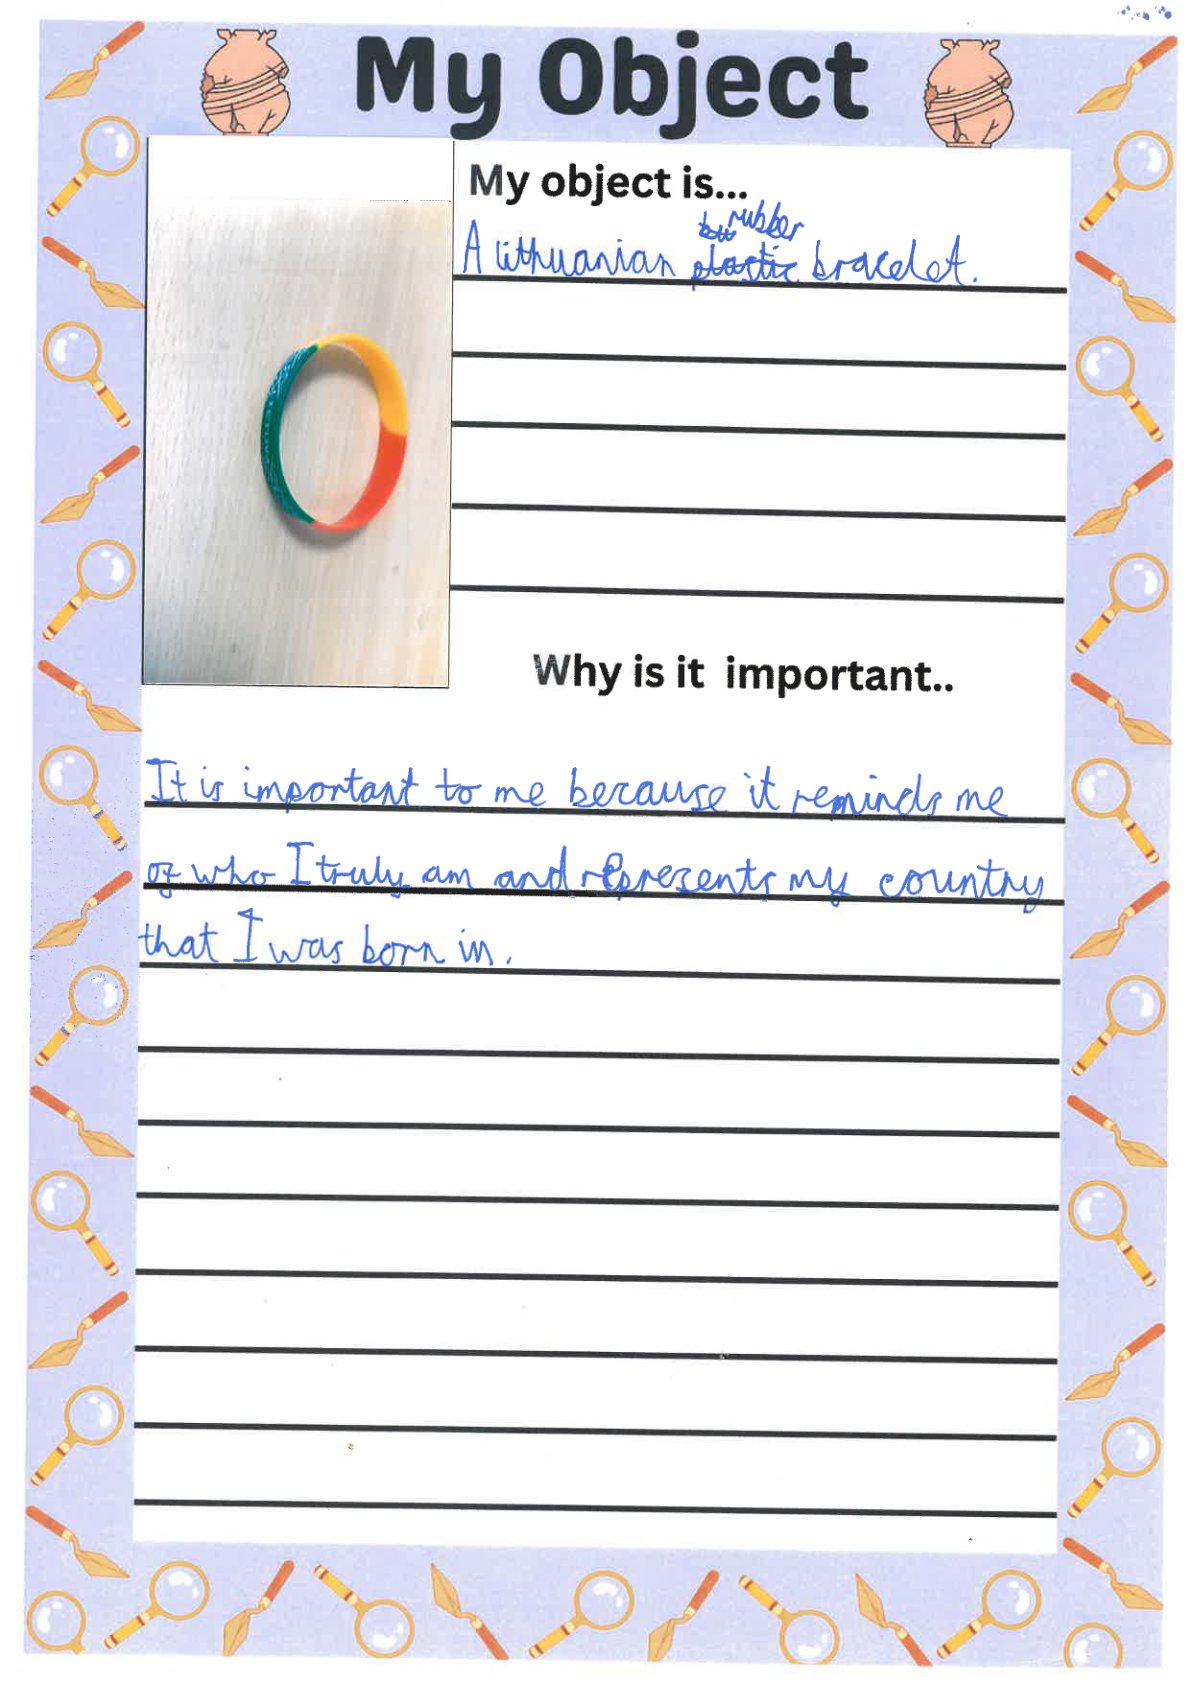 My Object
My object is...
rubber
A lithuanian plastic bracelet.
Why is it important..
It is important to me because it reminds me
of who I truly am and represents my country
that I was born in.